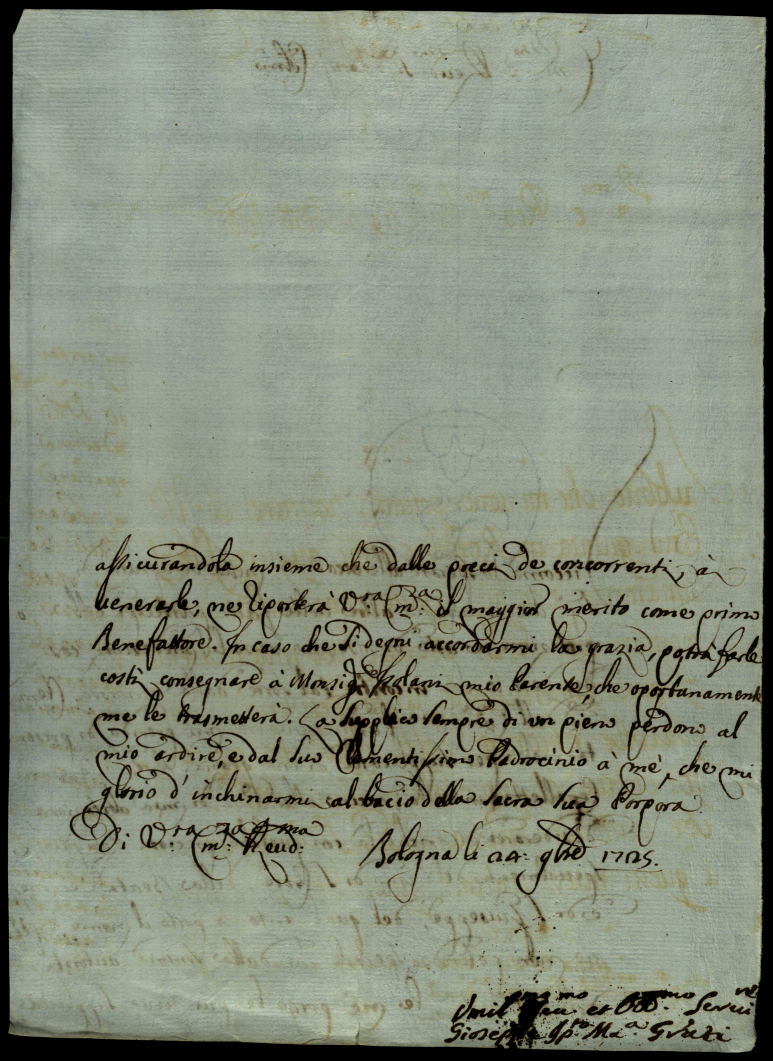 assicurandola insieme che dalle preci de concorrenti, à
venerarle, ne riporterà V.ra Em.za il maggior merito come primo
Benefattore. In caso che si degni accordarmi la grazia, potrà farle
costì consegnare à Monsig.r Isolani mio Parente, che oportunamente
me le trasmetterà. La supplico sempre di un pieno perdono al
mio ardire, e dal suo Clementissimo Padrocinio à mè, che mi
glorio d'inchinarmi al bacio della sacra sua Porpora.
Di V.ra Em.za Reud.ma
Bologna li 24. 9bre 1725.
et Obb.mo Serui.re
Gioseppe M.a